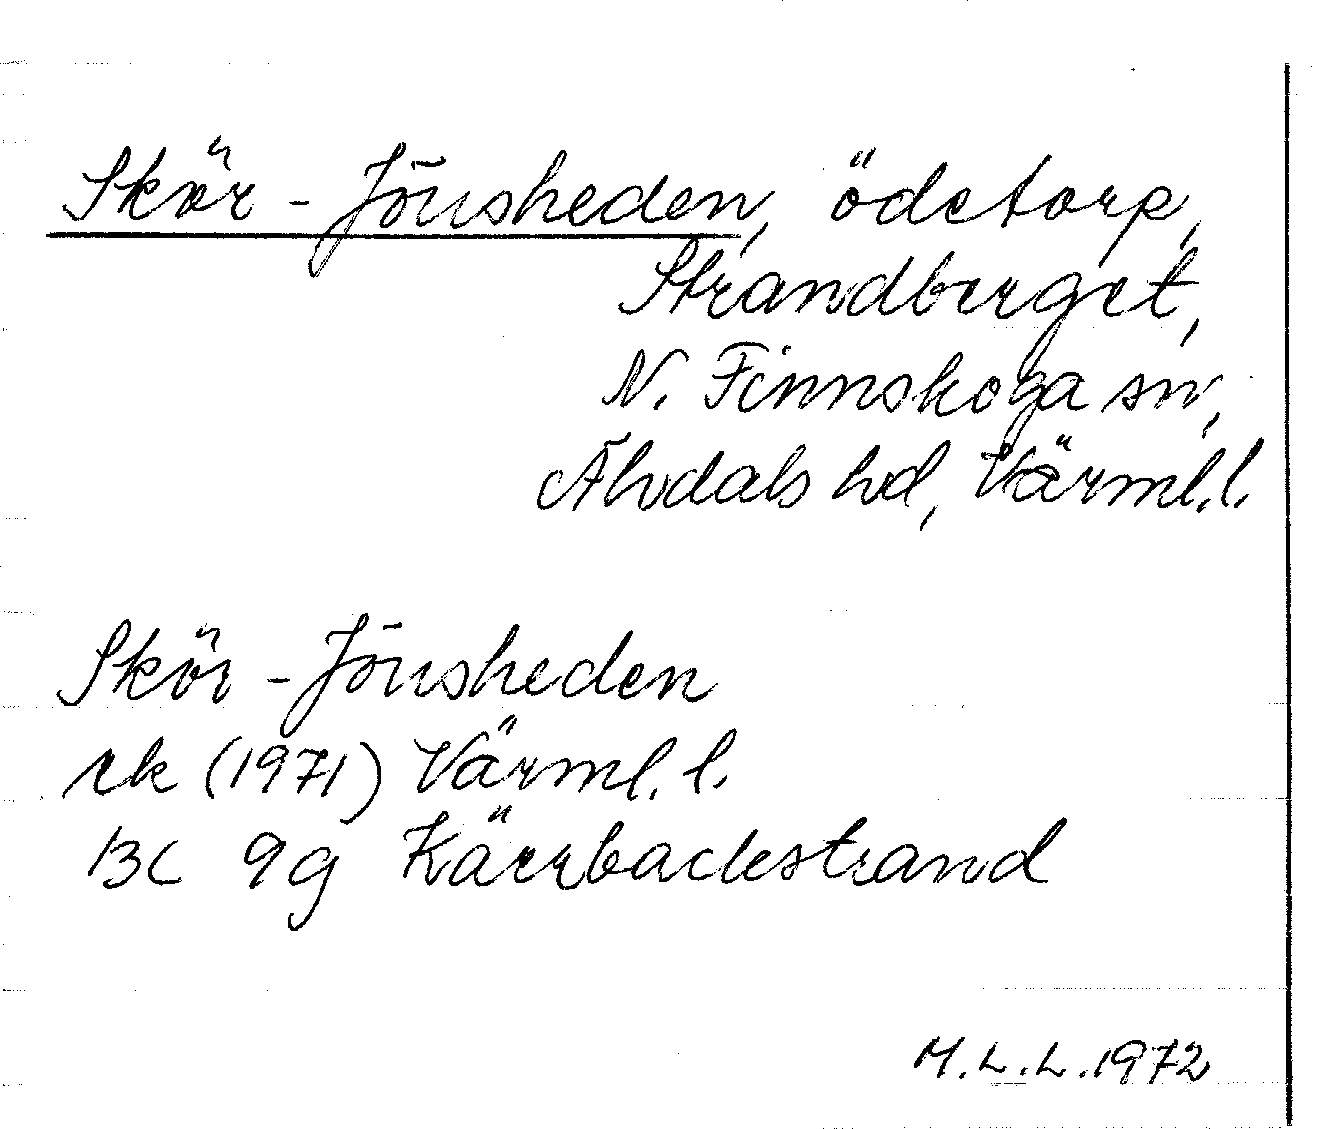 Skör-Jönsheden, ödetorp,
Strandberget,
N. Finnskoga sn,
Älvdals hd, Värml.l.
Skör-Jönsheden
rk (1971) Värml.l.
13C 9g Kärrbackstrand
M.L.L.1972